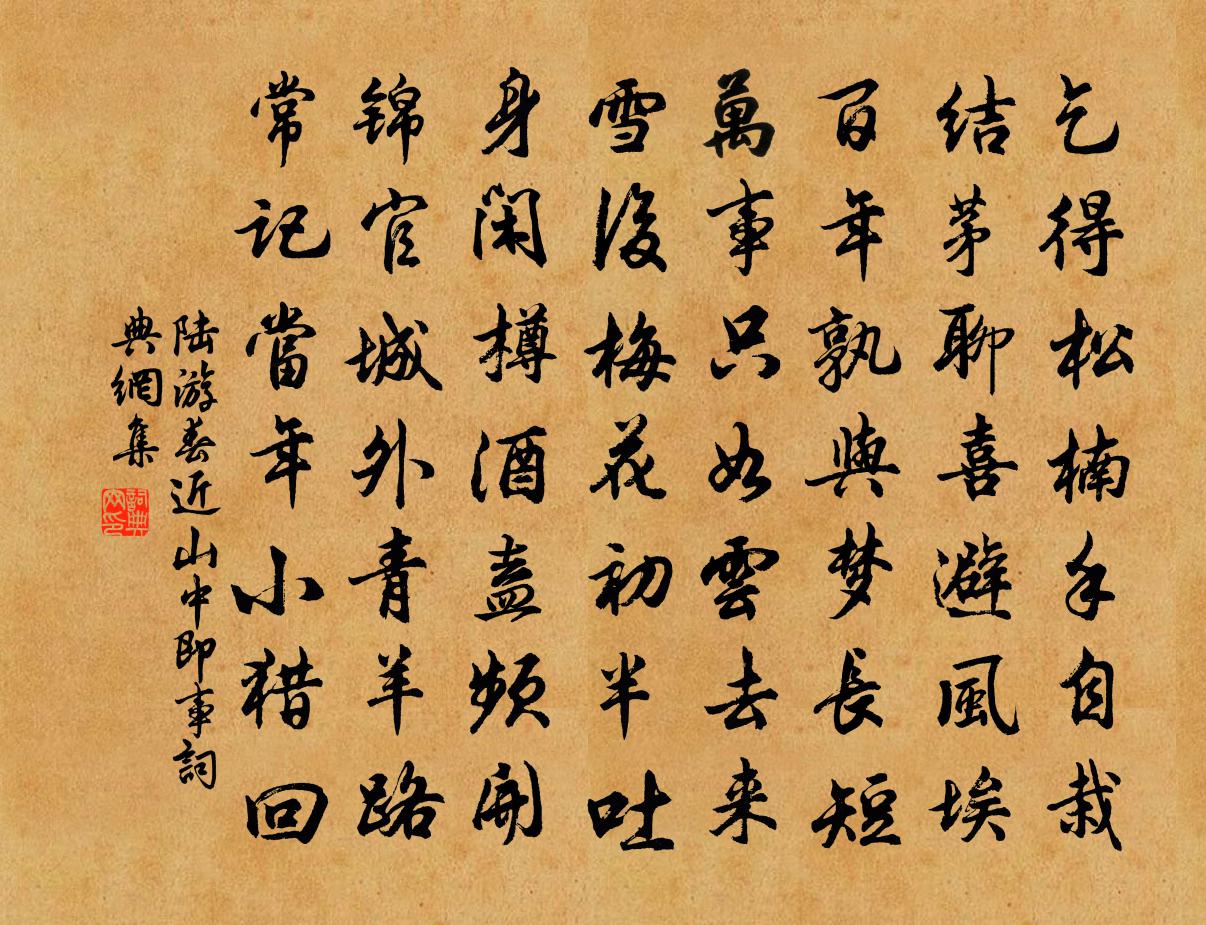 乞得松楠手自栽
结茅聊喜避風埃
百年孰與梦長短
萬事只如雲去来
雪後梅花初半吐
身閑樽酒盍頻開
锦官城外青羊路
常记當年小猎回
陆游春近山中即事詞
典網集
詞典網印